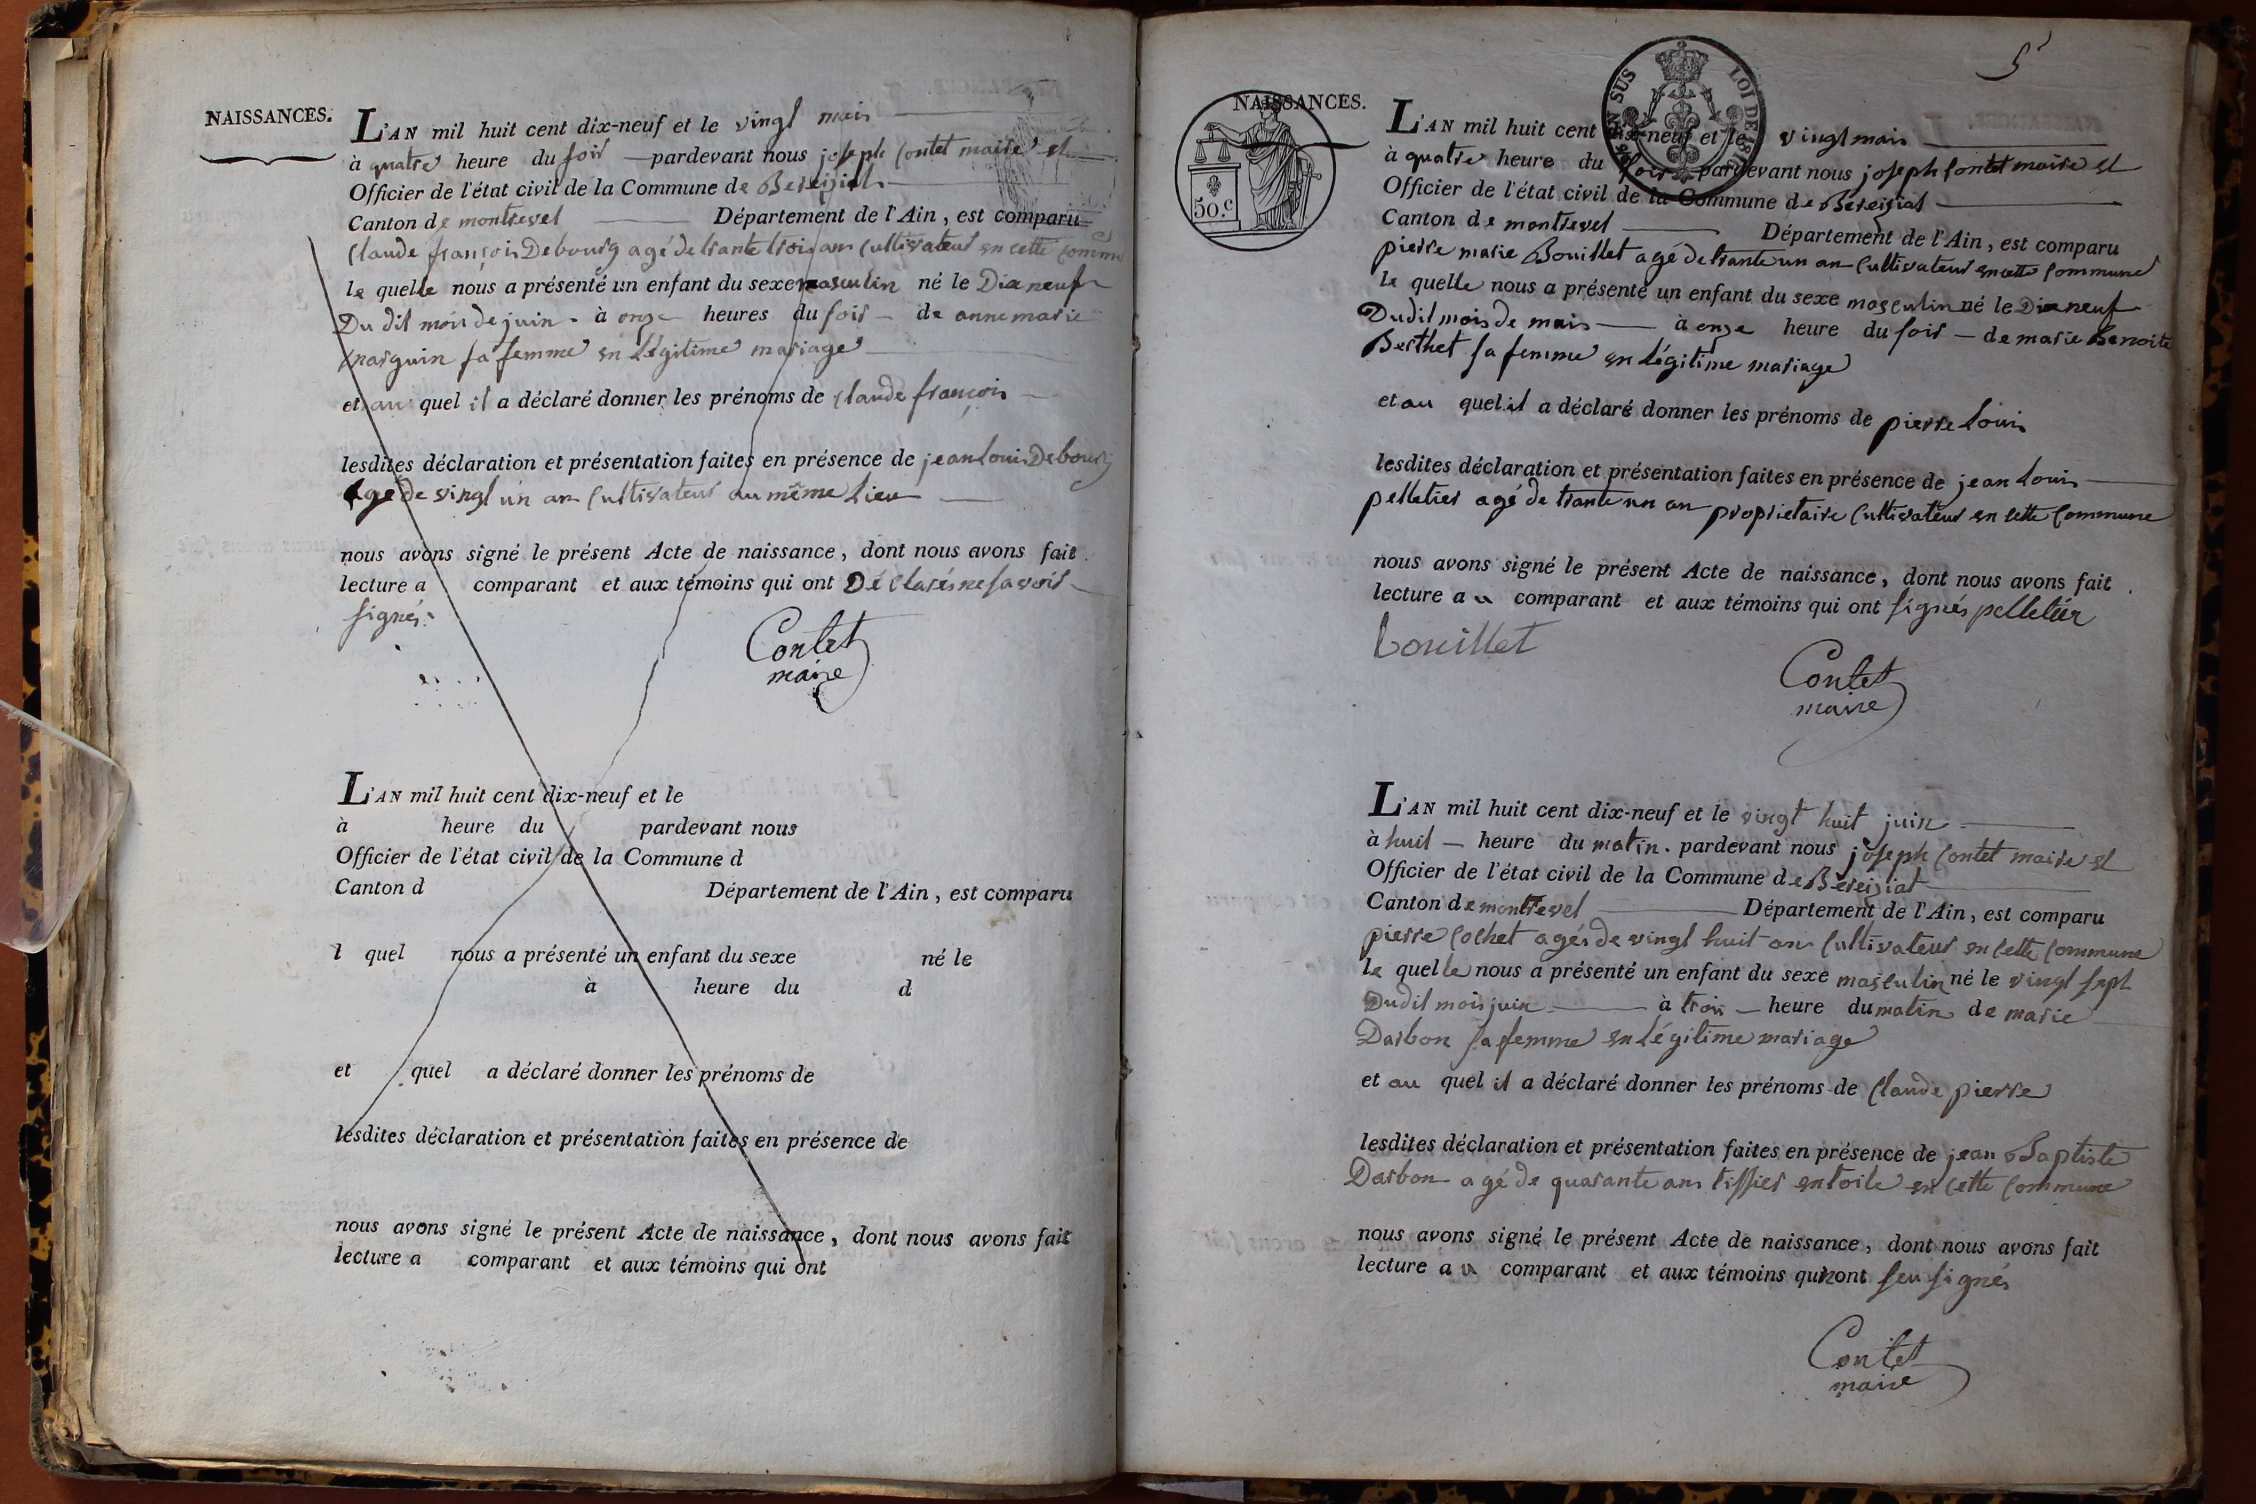 NAISSANCES.
L'AN mil huit cent dix-neuf et le vingt mais
à quatre heure du soir pardevant nous joseph Contet maire et
Officier de l'état civil de la Commune de Bereiziat
Canton de montrevel Département de l'Ain, est comparu
Claude françois Debourg agé de trante trois ans Cultivateur en cette Commune
le quelle nous a présenté un enfant du sexe masculin né le Dixneuf
Du dit mois de juin à onze heures du soir de anne marie
marguin sa femme en Légitime mariage
et au quel il a déclaré donner les prénoms de Claude françois
lesdites déclaration et présentation faites en présence de jean Louis Debourg
agé de vingt un an Cultivateur au même Lieu
nous avons signé le présent Acte de naissance, dont nous avons fait
lecture a comparant et aux témoins qui ont Déclarés ne savoir
signés.
Contet
maire
L'AN mil huit cent dix-neuf et le
à heure du pardevant nous
Officier de l'état civil de la Commune d
Canton d Département de l'Ain, est comparu
l quel nous a présenté un enfant du sexe né le
à heure du d
et quel a déclaré donner les prénoms de
lesdites déclaration et présentation faites en présence de
nous avons signé le présent Acte de naissance, dont nous avons fait
lecture a comparant et aux témoins qui ont
5
NAISSANCES.
50.c
SUS LOI DE 1816
L'AN mil huit cent dix-neuf et le vingt mais
à quatre heure du soir pardevant nous joseph Contet maire et
Officier de l'état civil de la Commune de Béreiziat
Canton de montrevel Département de l'Ain, est comparu
pierre marie Bouillet agé de trante un an Cultivateur en cette Commune
le quelle nous a présenté un enfant du sexe masculin né le Dixneuf
Dudit mois de mais à onze heure du soir de marie Benoite
Berthet sa femme en légitime mariage
et au quel il a déclaré donner les prénoms de pierre Louis
lesdites déclaration et présentation faites en présence de jean Louis
pelletier agé de trante un an proprietaire Cultivateur en cette Commune
nous avons signé le présent Acte de naissance, dont nous avons fait
lecture au comparant et aux témoins qui ont signés pelletier
bouillet
Contet
maire
L'AN mil huit cent dix-neuf et le vingt huit juin
à huit heure du matin. pardevant nous joseph Contet maire et
Officier de l'état civil de la Commune de Béreiziat
Canton de montrevel Département de l'Ain, est comparu
pierre Cochet agés de vingt huit ans Cultivateur en cette Commune
le quelle nous a présenté un enfant du sexe masculin né le vingt sept
Dudit mois juin à trois heure du matin de marie
Darbon sa femme en Légitime mariage
et au quel il a déclaré donner les prénoms de Claude pierre
lesdites déclaration et présentation faites en présence de jean Baptiste
Darbon agé de quarante ans tissier en toile en cette Commune
nous avons signé le présent Acte de naissance, dont nous avons fait
lecture au comparant et aux témoins qui n'ont seu signés
Contet
maire